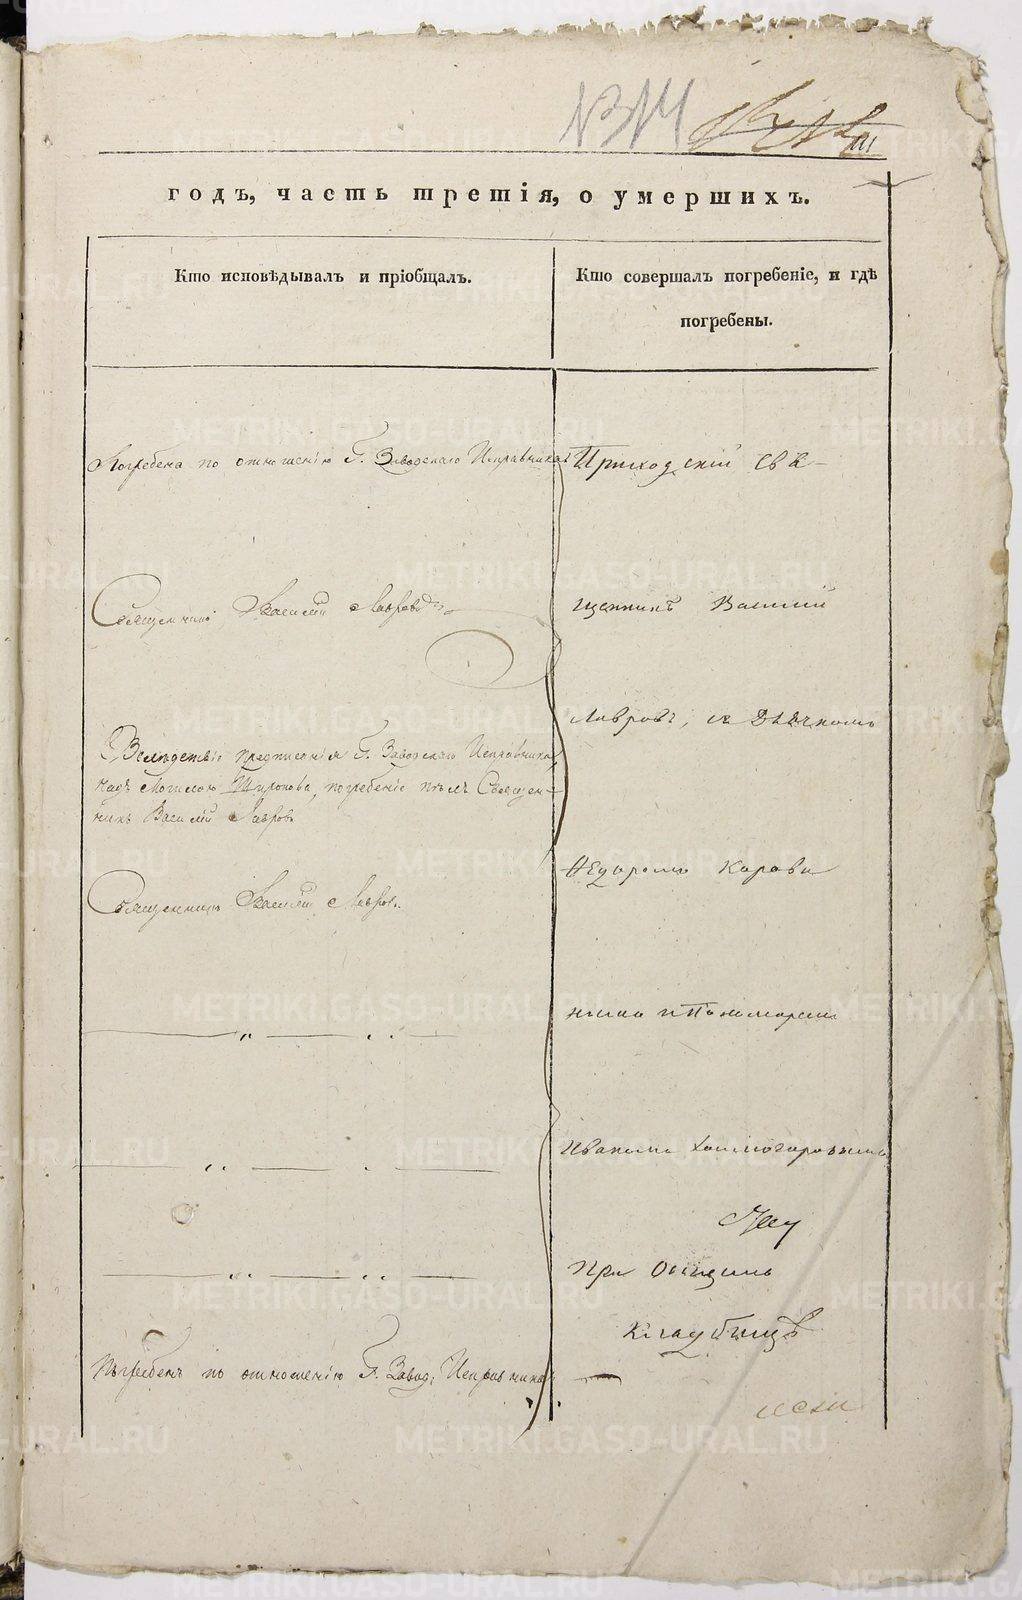 годъ, часть третія, о умершихъ.
Кто исповѣдывалъ и пріобщалъ.
Кто совершалъ погребеніе, и гдѣ
погребены.
Погребена по отношенію Г. Заводскаго Исправника
Священникъ Василій Лавровъ
Вслѣдствіе предписанія Г. Заводскаго Исправника
надъ могилою погребеніе пѣлъ Священ-
никъ Василій Лавровъ
Священникъ Василій Лавровъ
Погребенъ по отношенію Г. Завод. Исправника
Приходскій Свя-
щенникъ Василій
Лавровъ, съ Дьячкомъ
Ѳедоромъ Корови
нымъ и Пономаремъ
Иваномъ Холмогоровымъ
При общемъ
кладбищѣ
METRIKI.GASO-URAL.RU